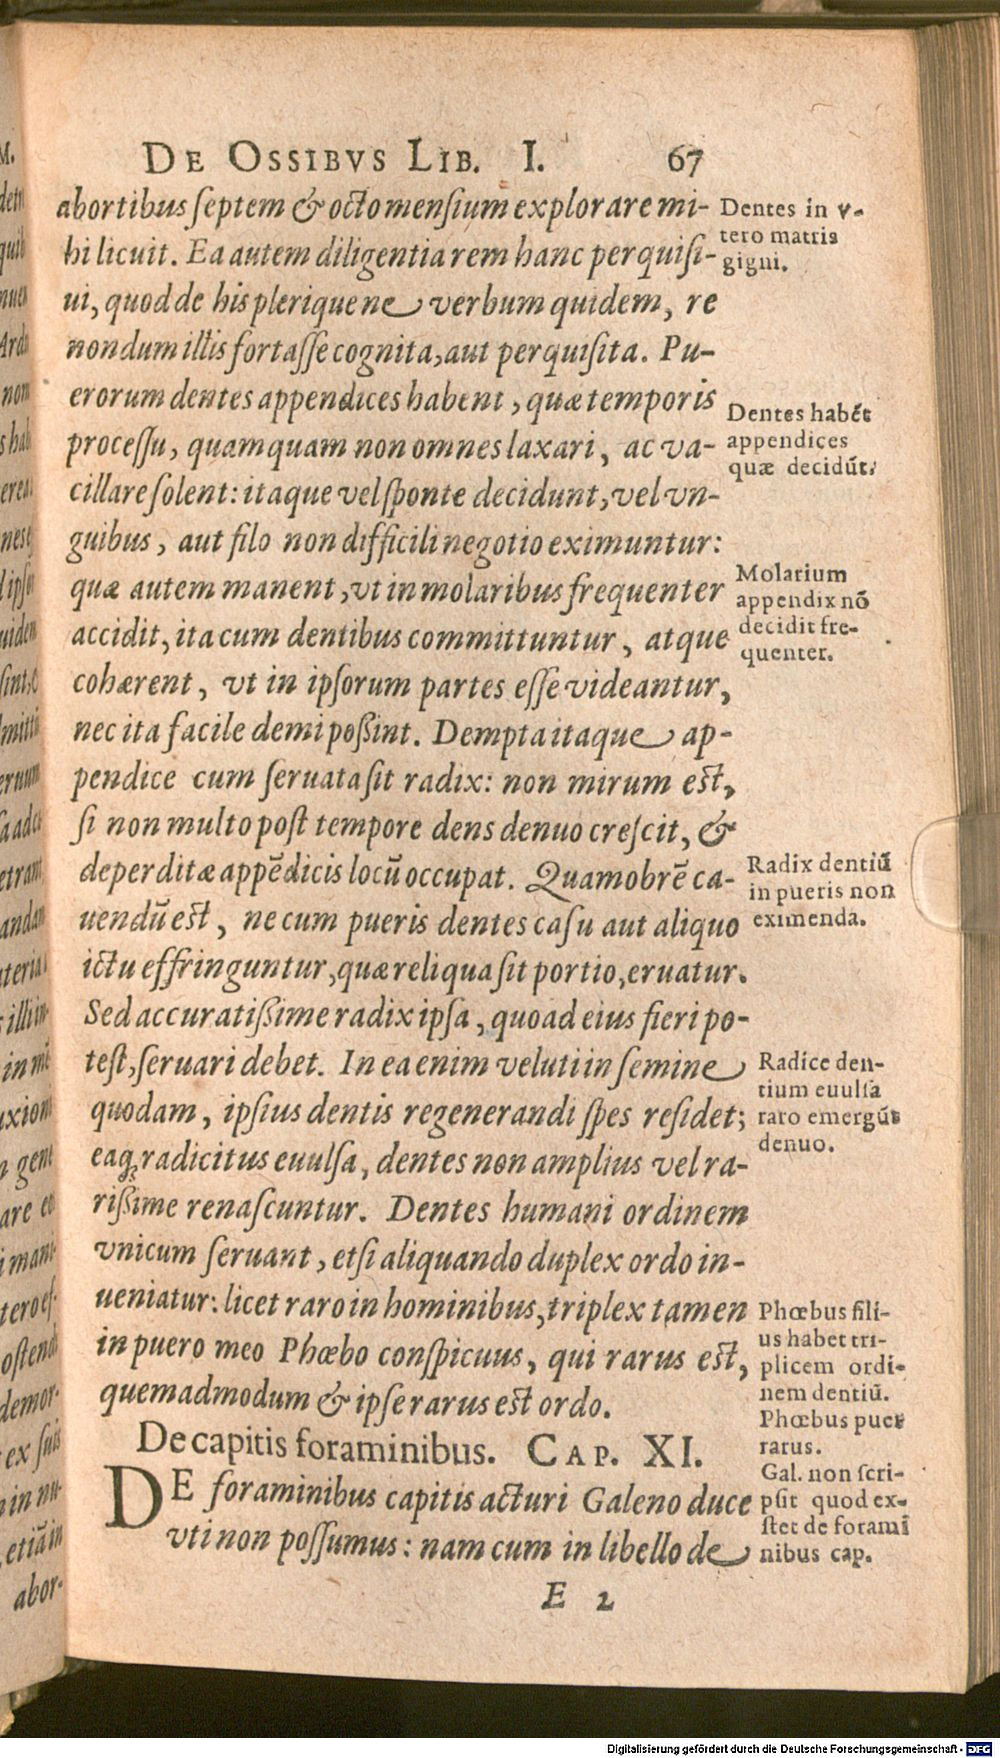 DE OSSIBVS LIB. I. 67
abortibus ſeptem & octo menſium explorare mi-
hi licuit. Ea autem diligentia rem hanc perquiſi-
ui, quod de his plerique ne verbum quidem, re
nondum illis fortaſſe cognita, aut perquiſita. Pu-
erorum dentes appendices habent, quæ temporis
proceſſu, quamquam non omnes laxari, ac va-
cillare ſolent: itaque vel ſponte decidunt, vel vn-
guibus, aut filo non difficili negotio eximuntur:
quæ autem manent, vt in molaribus frequenter
accidit, ita cum dentibus committuntur, atque
cohærent, vt in ipſorum partes eſſe videantur,
nec ita facile demi poßint. Dempta itaque ap-
pendice cum ſeruata ſit radix: non mirum eſt,
ſi non multo poſt tempore dens denuo creſcit, &
deperditæ appēdicis locū occupat. Quamobrē ca-
uendū eſt, ne cum pueris dentes caſu aut aliquo
ictu effringuntur, quæ reliqua ſit portio, eruatur.
Sed accuratißime radix ipſa, quoad eius fieri po-
teſt, ſeruari debet. In ea enim veluti in ſemine
quodam, ipſius dentis regenerandi ſpes reſidet;
eaq; radicitus euulſa, dentes non amplius vel ra-
rißime renaſcuntur. Dentes humani ordinem
vnicum ſeruant, etſi aliquando duplex ordo in-
ueniatur: licet raro in hominibus, triplex tamen
in puero meo Phœbo conſpicuus, qui rarus eſt,
quemadmodum & ipſe rarus eſt ordo.
De capitis foraminibus. CAP. XI.
DE foraminibus capitis acturi Galeno duce
vti non poſſumus: nam cum in libello de
E 2
Dentes in v-
tero matris
gigni.
Dentes habēt
appendices
quæ decidūt.
Molarium
appendix nō
decidit fre-
quenter.
Radix dentiū
in pueris non
eximenda.
Radice den-
tium euulſa
raro emergūt
denuo.
Phœbus fili-
us habet tri-
plicem ordi-
nem dentiū.
Phœbus puer
rarus.
Gal. non ſcri-
pſit quod ex-
ſtet de forami
nibus cap.
Digitalisierung gefördert durch die Deutsche Forschungsgemeinschaft - DFG